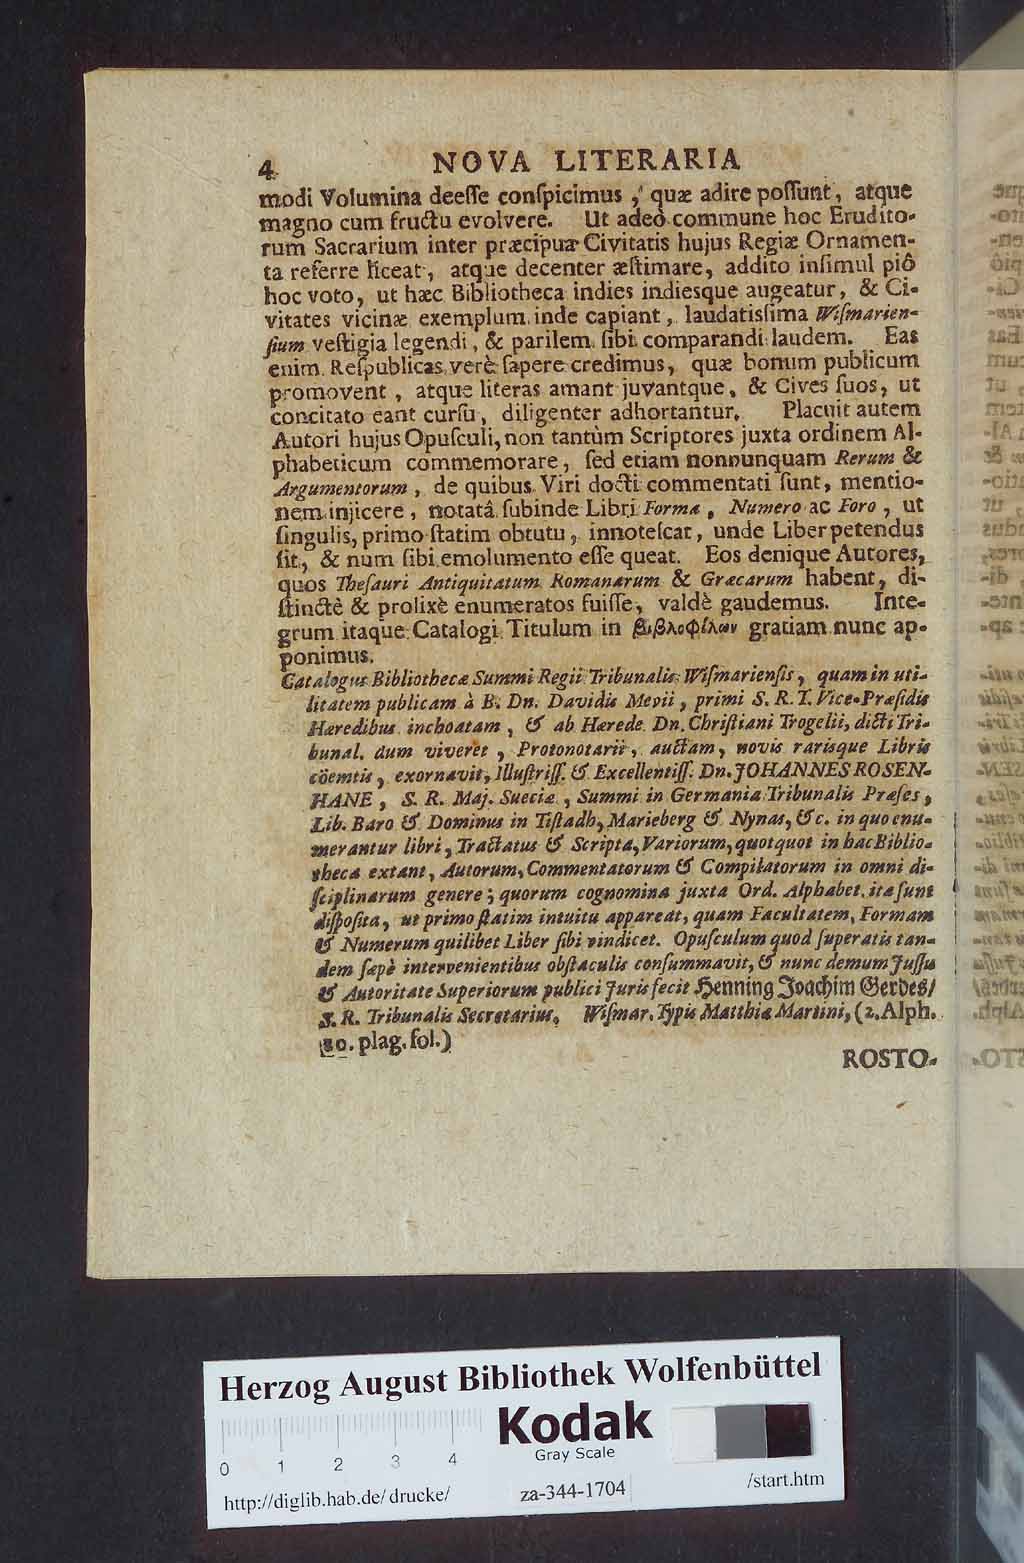 4 NOVA LITERARIA
modi Volumina deeſſe conſpicimus, quæ adire poſſunt, atque
magno cum fructu evolvere. Ut adeò commune hoc Erudito-
rum Sacrarium inter præcipua Civitatis hujus Regiæ Ornamen-
ta referre liceat, atque decenter æſtimare, addito inſimul piô
hoc voto, ut hæc Bibliotheca indies indiesque augeatur, & Ci-
vitates vicinæ exemplum inde capiant, laudatisſima Wiſmarien-
ſium veſtigia legendi, & parilem ſibi comparandi laudem. Eas
enim Reſpublicas verè ſapere credimus, quæ bonum publicum
promovent, atque literas amant juvantque, & Cives ſuos, ut
concitato eant curſu, diligenter adhortantur. Placuit autem
Autori hujus Opuſculi, non tantùm Scriptores juxta ordinem Al-
phabeticum commemorare, ſed etiam nonnunquam Rerum &
Argumentorum, de quibus Viri docti commentati ſunt, mentio-
nem injicere, notatâ ſubinde Libri Forma, Numero ac Foro, ut
ſingulis, primo ſtatim obtutu, innoteſcat, unde Liber petendus
ſit, & num ſibi emolumento eſſe queat. Eos denique Autores,
quos Theſauri Antiquitatum Romanarum & Græcarum habent, di-
ſtinctè & prolixè enumeratos fuiſſe, valdè gaudemus. Inte-
grum itaque Catalogi Titulum in βιβλοφίλων gratiam nunc ap-
ponimus.
Catalogus Bibliothecæ Summi Regii Tribunalis Wiſmarienſis, quam in uti-
litatem publicam à B. Dn. Davidis Mevii, primi S. R. T. Vice-Præſidis
Hæredibus inchoatam, & ab Hærede Dn. Chriſtiani Trogelii, dicti Tri-
bunal. dum viveret, Protonotarii, auctam, novis rarisque Libris
cöemtis, exornavit, Illuſtriſſ. & Excellentiſſ. Dn. JOHANNES ROSEN-
HANE, S. R. Maj. Sueciæ, Summi in Germania Tribunalis Præſes,
Lib. Baro & Dominus in Tiſtadh, Marieberg & Nynas, &c. in quo enu-
merantur libri, Tractatus & Scripta, Variorum, quotquot in hac Biblio-
theca extant, Autorum, Commentatorum & Compilatorum in omni di-
ſciplinarum genere; quorum cognomina juxta Ord. Alphabet. ita ſunt
diſpoſita, ut primo ſtatim intuitu appareat, quam Facultatem, Formam
& Numerum quilibet Liber ſibi vindicet. Opuſculum quod ſuperatis tan-
dem ſæpè intervenientibus obſtaculis conſummavit, & nunc demum Juſſu
& Autoritate Superiorum publici Juris fecit Henning Joachim Gerdes/
S. R. Tribunalis Secretarius, Wiſmar. Typis Matthiæ Martini, (2. Alph.
20. plag. fol.)
ROSTO-
Herzog August Bibliothek Wolfenbüttel
Kodak
Gray Scale
0 1 2 3 4
http://diglib.hab.de/drucke/ za-344-1704 /start.htm